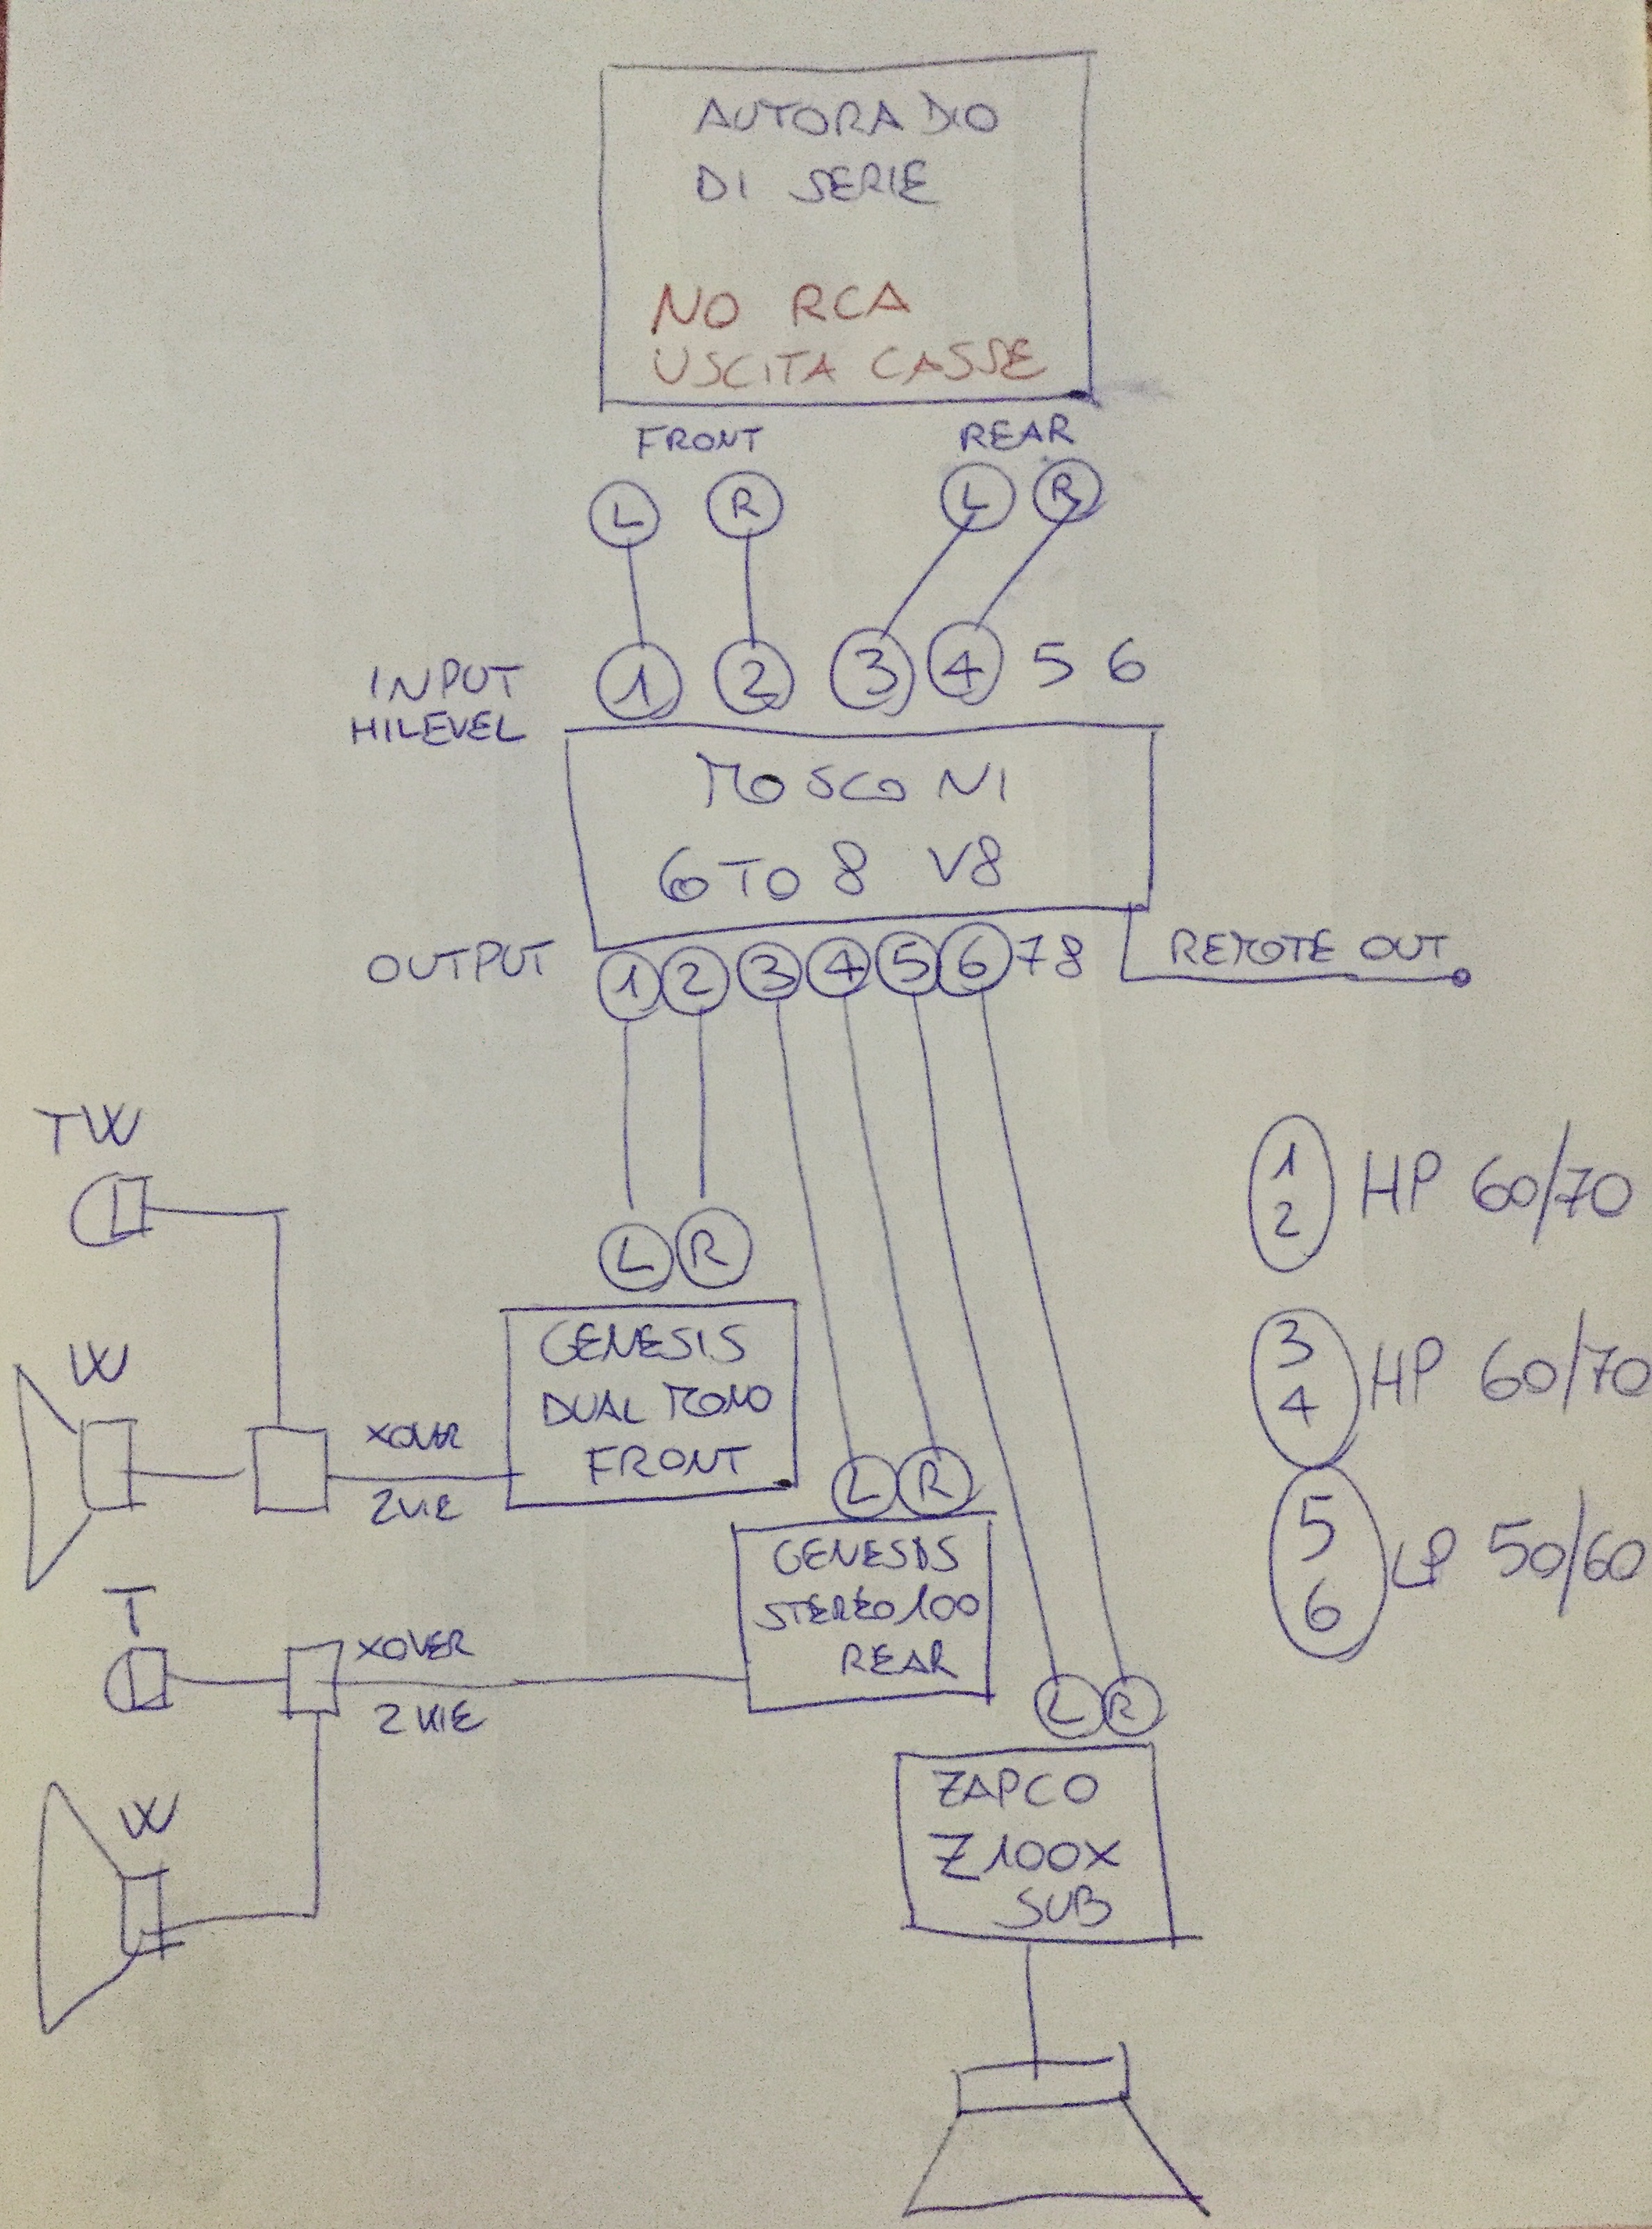 AUTORADIO
DI SERIE
NO RCA
USCITA CASSE
FRONT REAR
L R L R
INPUT
HILEVEL
1 2 3 4 5 6
MOSCONI
6TO8 V8
OUTPUT 1 2 3 4 5 6 7 8 REMOTE OUT
TW
1
2 HP 60/70
L R
GENESIS
DUAL MONO
FRONT
W
XOVER
2VIE
3
4 HP 60/70
L R
GENESIS
STEREO100
REAR
5
6 LP 50/60
T
XOVER
2 VIE
W
L R
ZAPCO
Z100X
SUB